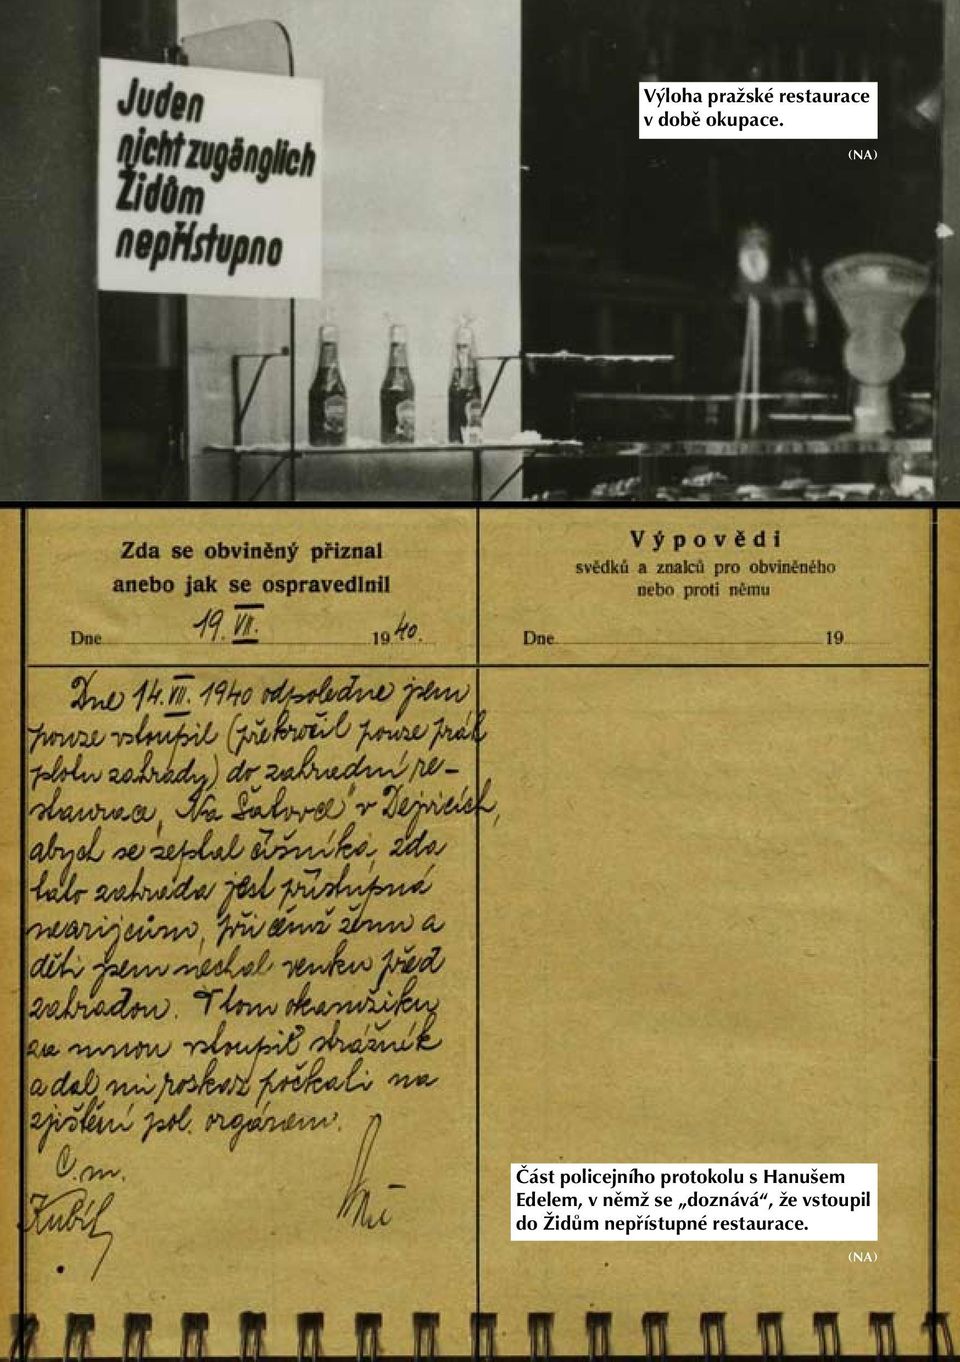 Juden
nicht zugänglich
Židům
nepřístupno
Výloha pražské restaurace
v době okupace.
(NA)
Zda se obviněný přiznal
anebo jak se ospravedlnil
Dne 19. VII. 1940.
Výpovědi
svědků a znalců pro obviněného
nebo proti němu
Dne 19
Dne 14. VII. 1940 odpoledne jsem
pouze vstoupil (překročil pouze práh
plotu zahrady) do zahradní re-
staurace „Na Šatovce" v Dejvicích,
abych se zeptal číšníka, zda
tato zahrada jest přístupná
nearijcům, při čemž ženu a
děti jsem nechal venku před
zahradou. V tom okamžiku
za mnou vstoupil strážník
a dal mi roskaz počkati na
zjištění pol. orgánem.
Část policejního protokolu s Hanušem
Edelem, v němž se „doznává“, že vstoupil
do Židům nepřístupné restaurace.
(NA)